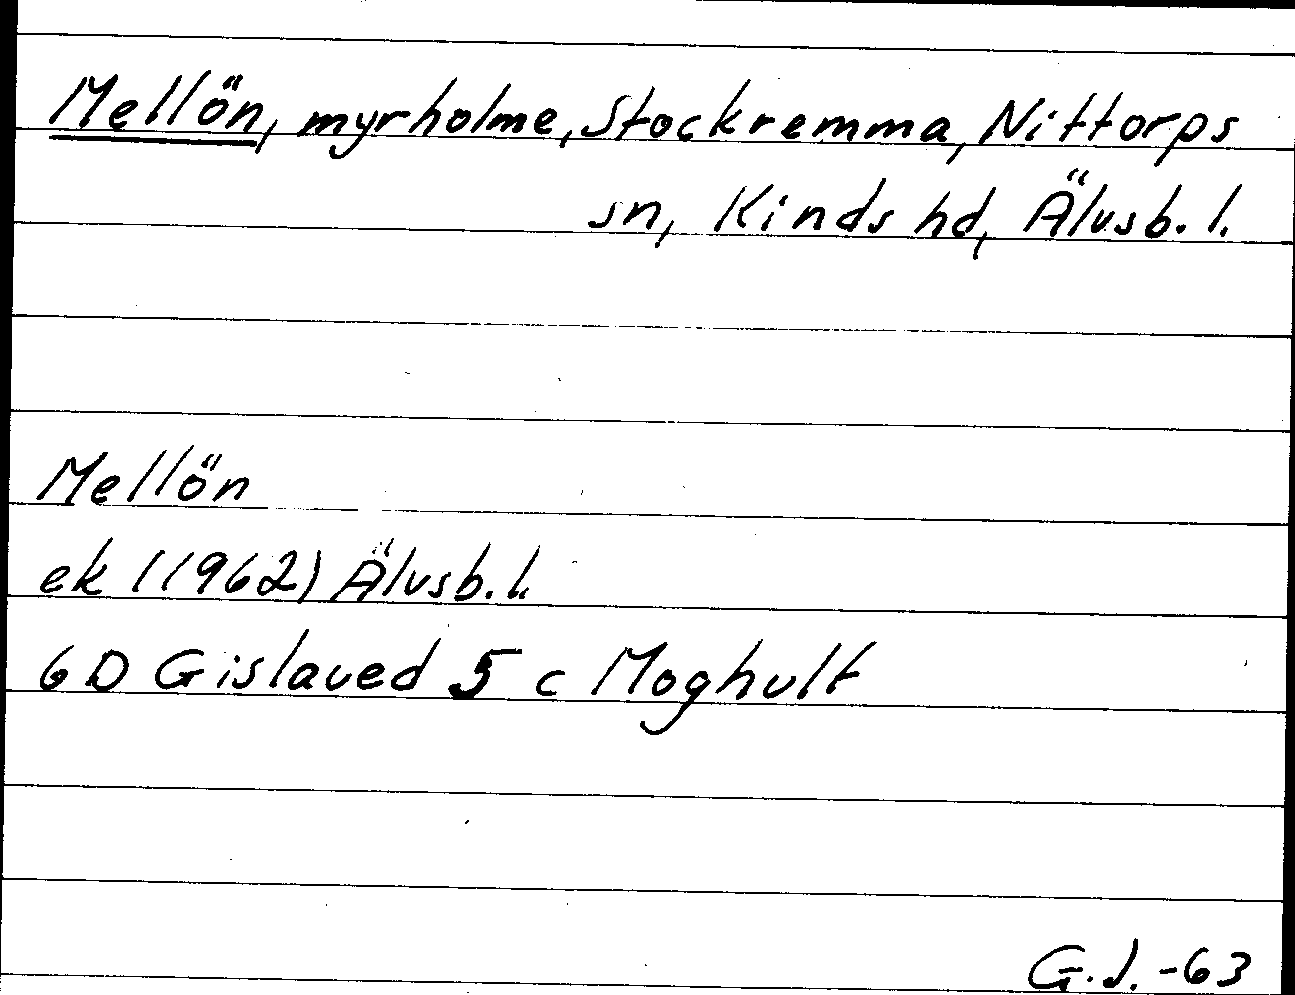 Mellön, myrholme, Stockremma, Nittorps
sn, Kinds hd, Älvsb. l.
Mellön
ek (1962) Älvsb. l.
6D Gislaved 5 c Moghult
G.J. -63